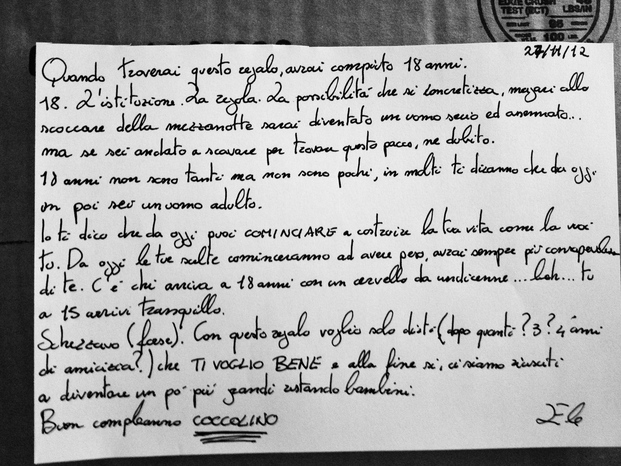 EDGE CRUSH
TEST (ECT)
LBS/IN
95
100 LBS
27/11/12
Quando troverai questo regalo, avrai compiuto 18 anni.
18. L'istituzione. La regola. La possibilità che si concretizza, magari allo
scoccare della mezzanotte sarai diventato un uomo serio ed assennato...
ma se sei andato a scavare per trovare questo pacco, ne dubito.
18 anni non sono tanti ma non sono pochi, in molti ti diranno che da oggi
in poi sei un uomo adulto.
Io ti dico che da oggi puoi COMINCIARE a costruire la tua vita come la vuoi
tu. Da oggi le tue scelte cominceranno ad avere peso, avrai sempre più consapevolezza
di te. C'è chi arriva a 18 anni con un cervello da undicenne... boh... tu
a 15 arrivi tranquillo.
Scherzavo (forse). Con questo regalo voglio solo dirti (dopo quanti? 3? 4 anni
di amicizia?) che TI VOGLIO BENE e alla fine si, ci siamo riusciti
a diventare un po' più grandi restando bambini.
Buon compleanno COCCOLINO